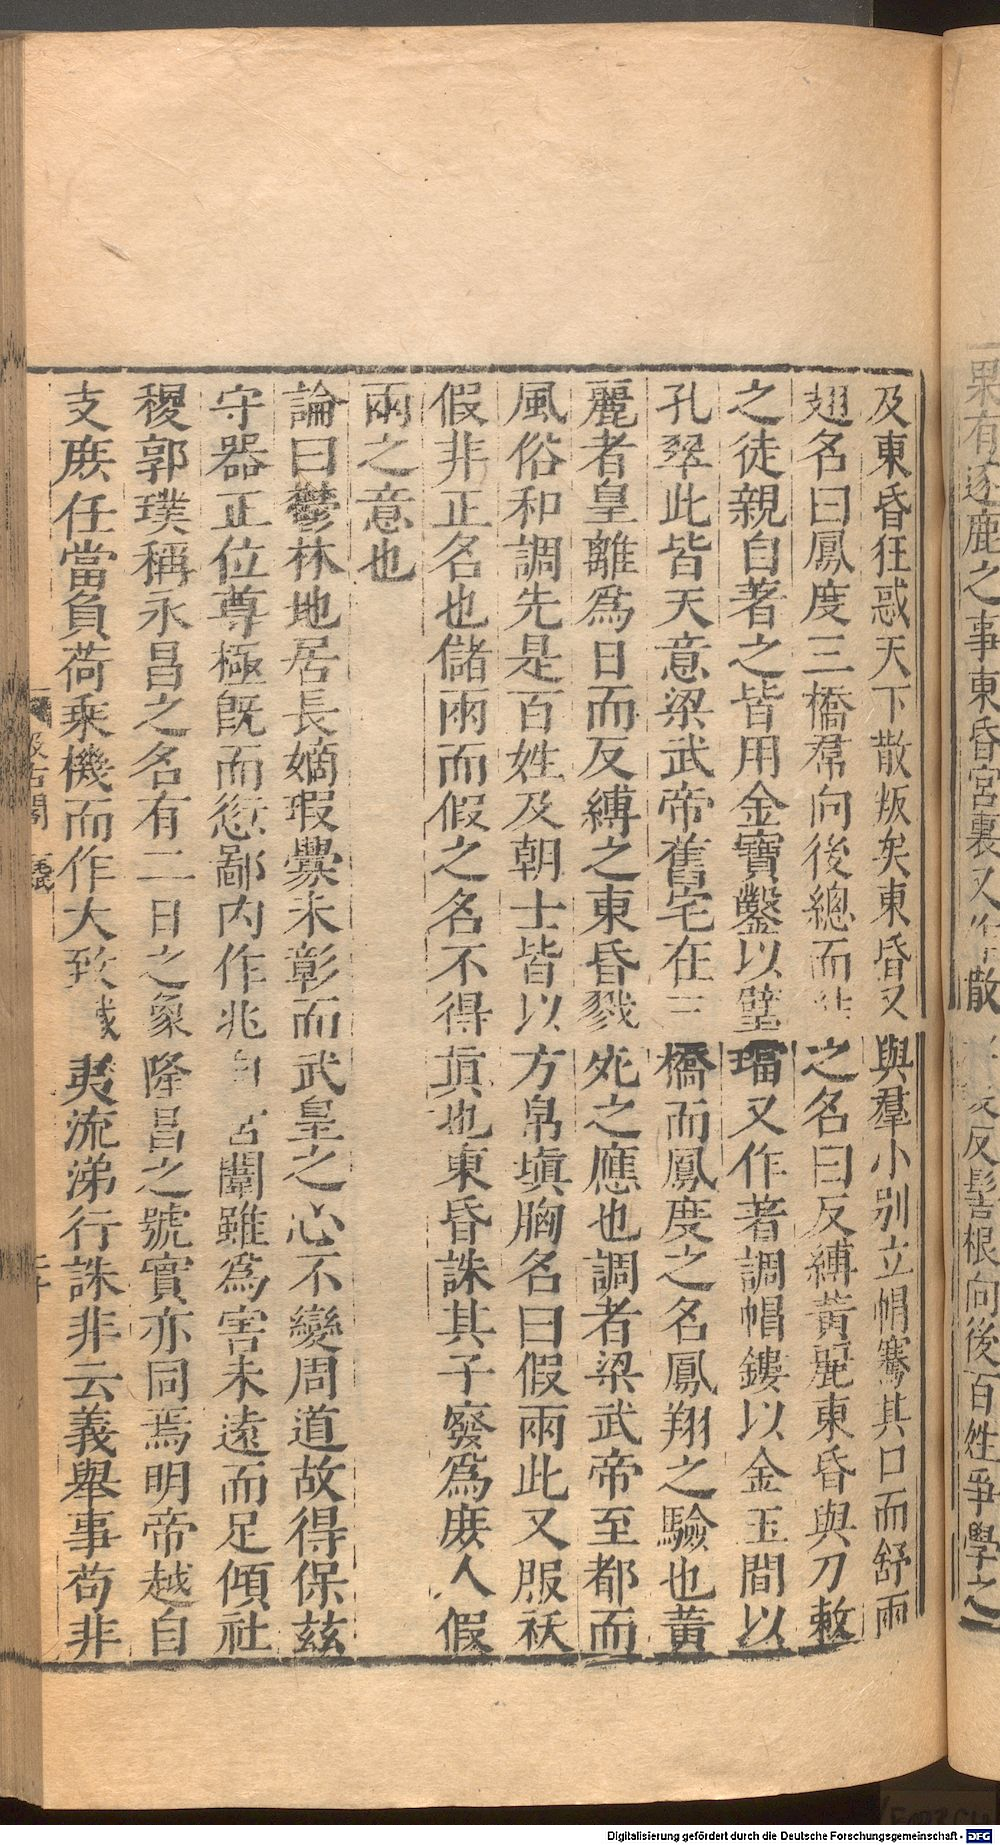 果有逐鹿之事東昏宮裏又作散反髻根向後百姓爭學之
及東昏狂惑天下散叛矣東昏又與羣小別立帽騫其口而舒兩
翅名曰鳳度三橋帬向後總而結之名曰反縛黃麗東昏與刀敕
之徒親自著之皆用金寶鑿以璧璫又作著調帽鏤以金玉間以
孔翠此皆天意梁武帝舊宅在三橋而鳳度之名鳳翔之驗也黃
麗者皇離爲日而反縛之東昏戮死之應也調者梁武帝至都而
風俗和調先是百姓及朝士皆以方帛塡胸名曰假兩此又服祅
假非正名也儲兩而假之名不得眞也東昏誅其子廢爲庻人假
兩之意也
論曰鬱林地居長嫡瑕舋未彰而武皇之心不變周道故得保茲
守器正位尊極旣而愆鄙內作兆自宮闈雖爲害未遠而足傾社
稷郭璞稱永昌之名有二日之象隆昌之號實亦同焉明帝越自
支庻任當負荷乗機而作大致殲夷流涕行誅非云義舉事苟非
汲古閣
毛氏
Digitalisierung gefördert durch die Deutsche Forschungsgemeinschaft - DFG